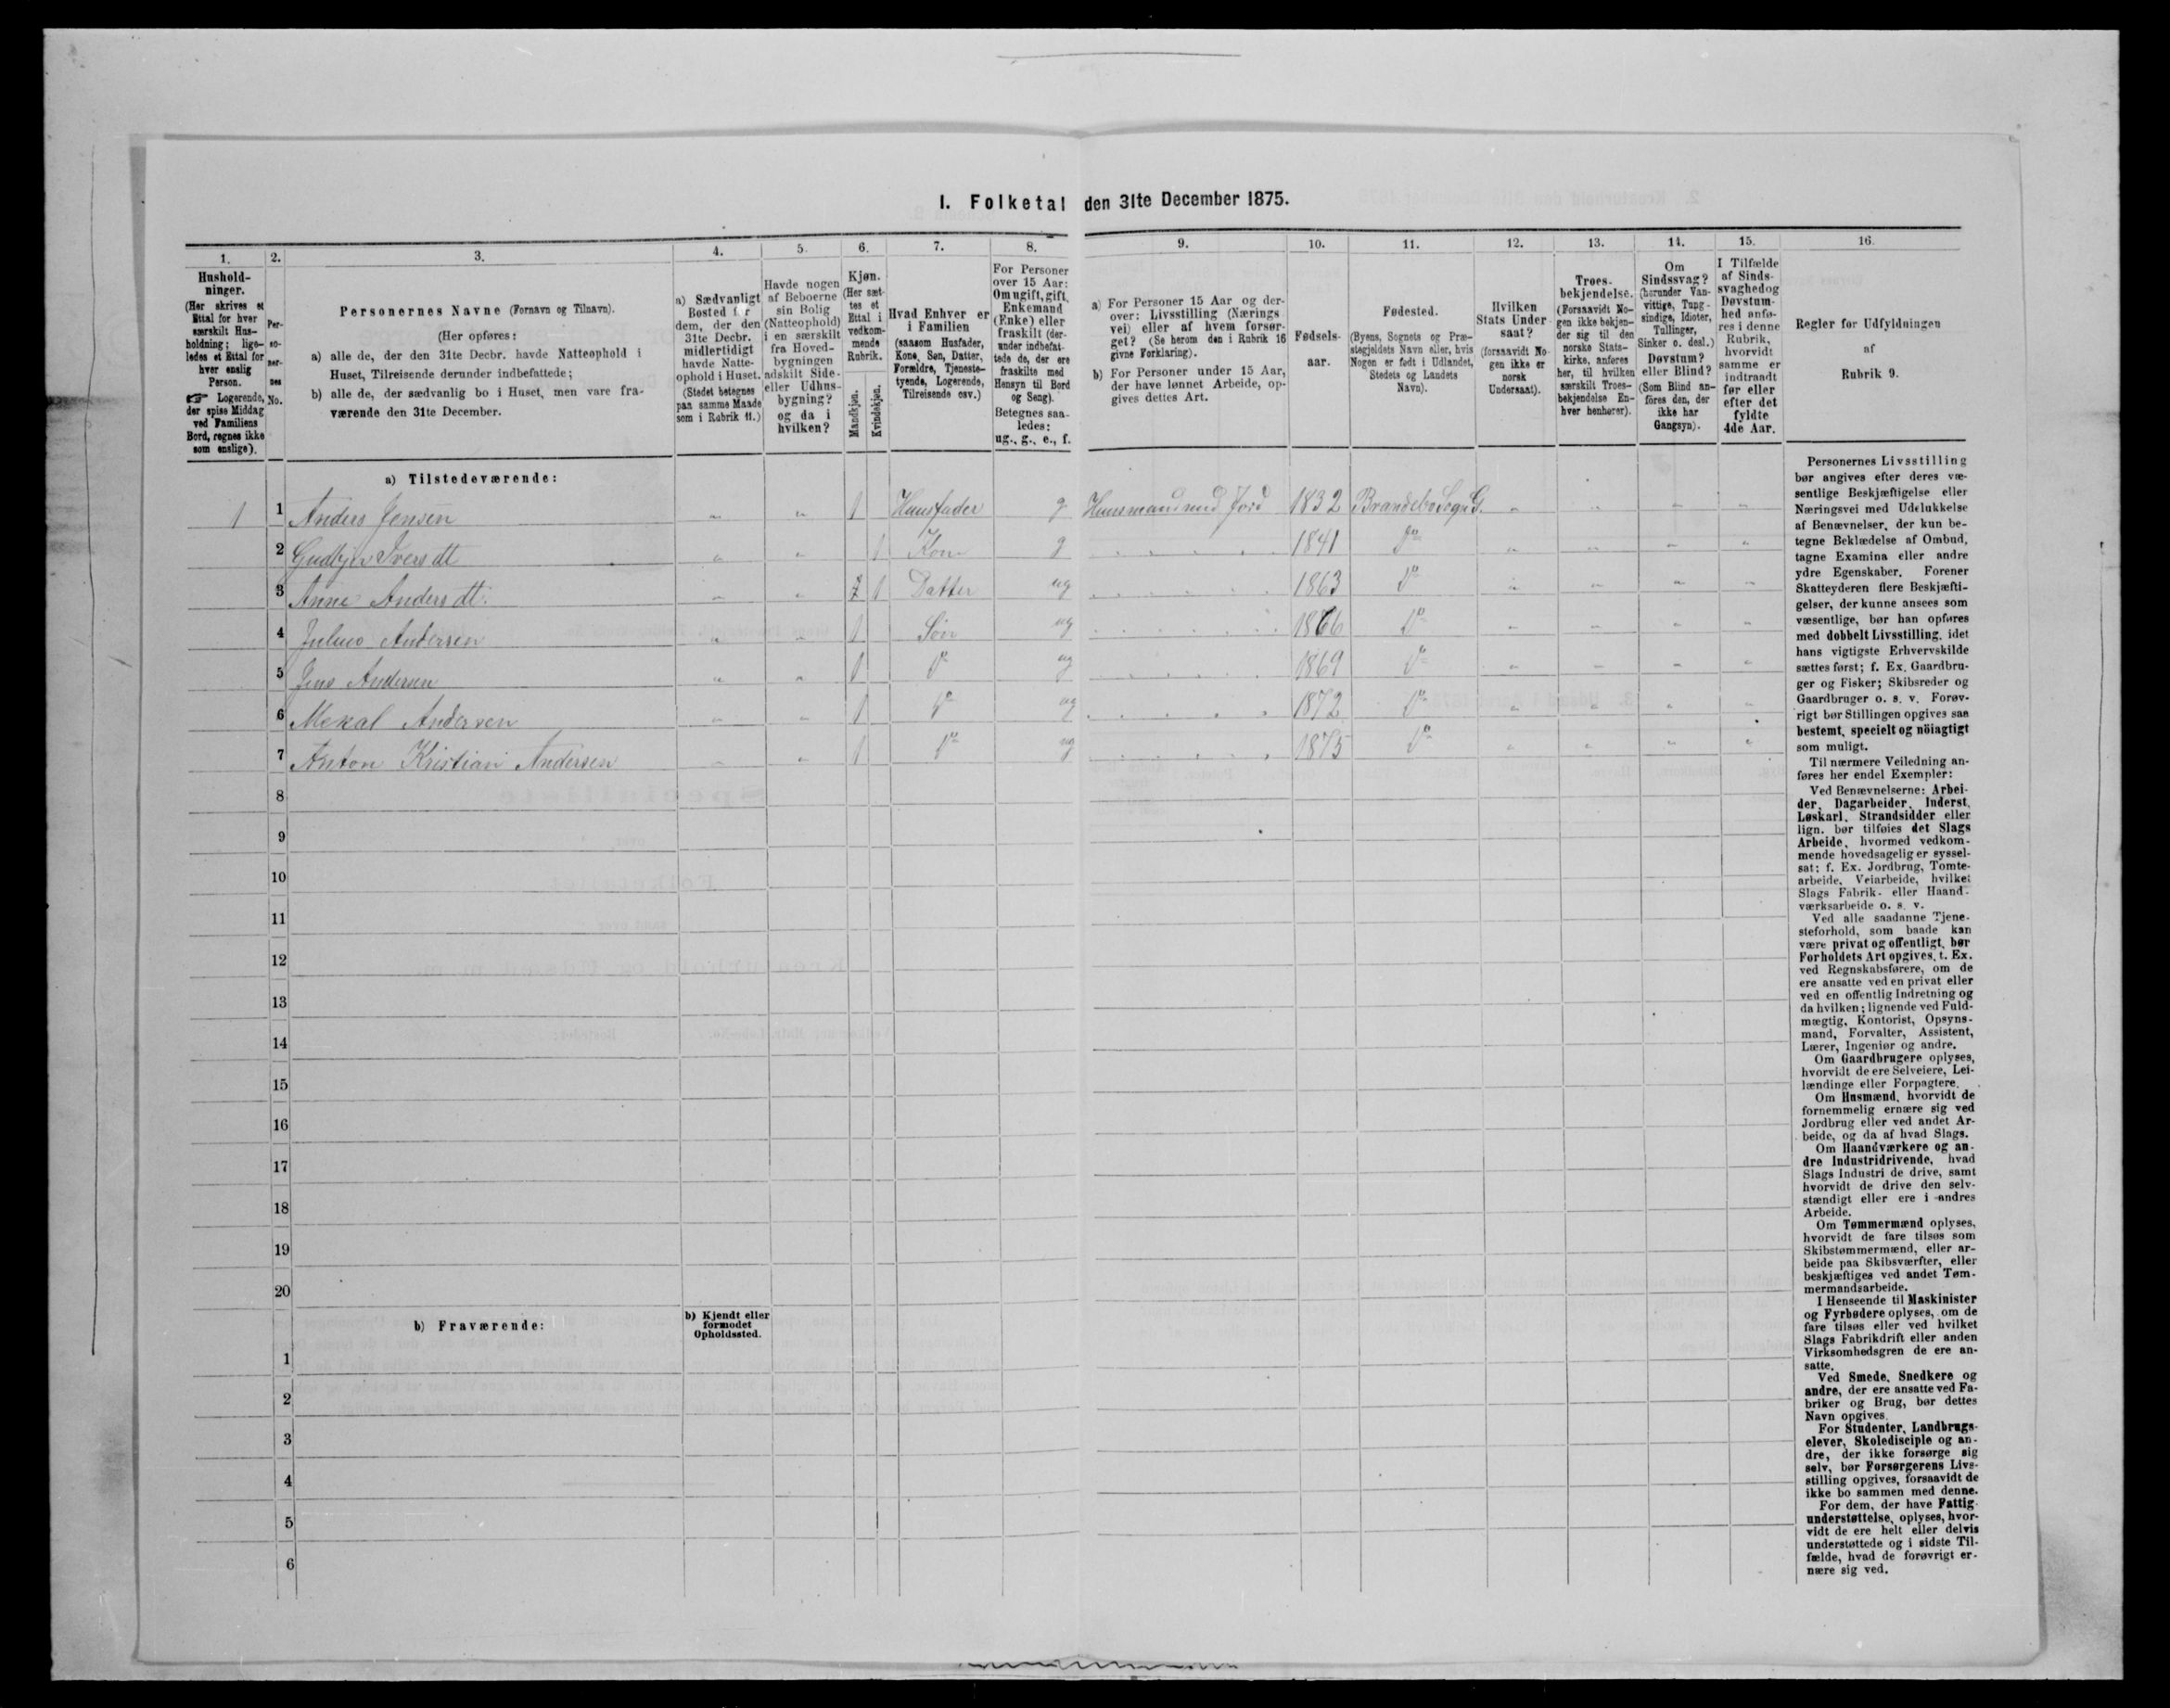 I. Folketal den 31te December 1875.
1.
Hushold-
ninger.
(Her skrives et
Ettal for hver
særskilt Hus-
holdning; lige-
ledes et Ettal for
hver enslig
Person.
☞ Logerende,
der spise Middag
ved Familiens
Bord, regnes ikke
som enslige).
2.
Per-
so-
ner-
nes
No.
3.
Personernes Navne (Fornavn og Tilnavn).
(Her opføres:
a) alle de, der den 31te Decbr. havde Natteophold i
Huset, Tilreisende derunder indbefattede;
b) alle de, der sædvanlig bo i Huset, men vare fra-
værende den 31te December.
4.
a) Sædvanligt
Bosted for
dem, der den
31te Decbr.
midlertidigt
havde Natte-
ophold i Huset.
(Stedet betegnes
paa samme Maade
som i Rubrik 11.)
5.
Havde nogen
af Beboerne
sin Bolig
(Natteophold)
i en særskilt
fra Hoved-
bygningen
adskilt Side-
eller Udhus-
bygning?
og da i
hvilken?
6.
Kjøn.
(Her sæt-
tes et
Ettal i
vedkom-
mende
Rubrik.
Mandkjøn.
Kvindekjøn.
7.
Hvad Enhver er
i Familien
(saasom Husfader,
Kone, Søn, Datter,
Forældre, Tjeneste-
tyende, Logerende,
Tilreisende osv.)
8.
For Personer
over 15 Aar:
Om ugift, gift,
Enkemand
(Enke) eller
fraskilt (der-
under indbefat-
tede de, der ere
fraskilte med
Hensyn til Bord
og Seng).
Betegnes saa-
ledes:
ug., g., e., f.
9.
a) For Personer 15 Aar og der-
over: Livsstilling (Nærings
vei) eller af hvem forsør-
get? (Se herom den i Rubrik 16
givne Forklaring).
b) For Personer under 15 Aar,
der have lønnet Arbeide, op-
gives dettes Art.
10.
Fødsels-
aar.
11.
Fødested.
(Byens, Sognets og Præ-
stegjeldets Navn eller, hvis
Nogen er født i Udlandet,
Stedets og Landets
Navn).
12.
Hvilken
Stats Under-
saat?
(forsaavidt No-
gen ikke er
norsk
Undersaat).
13.
Troes-
bekjendelse.
(Forsaavidt No-
gen ikke bekjen-
der sig til den
norske Stats-
kirke, anføres
her, til hvilken
særskilt Troes-
bekjendelse En-
hver henhører).
14.
Om
Sindssvag?
(herunder Van-
vittige, Tung-
sindige, Idioter,
Tullinger,
Sinker o. desl.)
Døvstum?
eller Blind?
(Som Blind an-
føres den, der
ikke har
Gangsyn).
15.
I Tilfælde
af Sinds-
svaghed og
Døvstum-
hed anfø-
res i denne
Rubrik,
hvorvidt
samme er
indtraadt
før eller
efter det
fyldte
4de Aar.
16.
Regler for Udfyldningen
af
Rubrik 9.
a) Tilstedeværende:
1 1 Anders Jensen " " 1 Huusfader g Huusmand med Jord 1832 Brandebo Sogn G. " " " "
2 Gudbjør Iversdt " " 1 Kone g 1841 Do " " " "
3 Anne Andersdt. " " 1 Datter ug 1863 Do " " " "
4 Julius Andersen " " 1 Søn ug 1866 Do " " " "
5 Jens Andersen " " 1 Do ug 1869 Do " " " "
6 Mekal Andersen " " 1 Do ug 1872 Do " " " "
7 Anton Kristian Andersen " " 1 Do ug 1875 Do " " " "
8
9
10
11
12
13
14
15
16
17
18
19
20
b) Fraværende:
b) Kjendt eller
formodet
Opholdssted.
1
2
3
4
5
6
Personernes Livsstilling
bør angives efter deres væ-
sentlige Beskjæftigelse eller
Næringsvei med Udelukkelse
af Benævnelser, der kun be-
tegne Beklædelse af Ombud,
tagne Examina eller andre
ydre Egenskaber. Forener
Skatteyderen flere Beskjæfti-
gelser, der kunne ansees som
væsentlige, bør han opføres
med dobbelt Livsstilling, idet
hans vigtigste Erhvervskilde
sættes først; f. Ex. Gaardbru-
ger og Fisker; Skibsreder og
Gaardbruger o. s. v. Forøv-
rigt bør Stillingen opgives saa
bestemt, specielt og nöiagtigt
som muligt.
Til nærmere Veiledning an-
føres her endel Exempler:
Ved Benævnelserne: Arbei-
der, Dagarbeider, Inderst,
Løskarl, Strandsidder eller
lign. bør tilføies det Slags
Arbeide, hvormed vedkom-
mende hovedsagelig er syssel-
sat; f. Ex. Jordbrug, Tomte-
arbeide, Veiarbeide, hvilket
Slags Fabrik- eller Haand-
værksarbeide o. s. v.
Ved alle saadanne Tjene-
steforhold, som baade kan
være privat og offentligt, bør
Forholdets Art opgives, t. Ex.
ved Regnskabsførere, om de
ere ansatte ved en privat eller
ved en offentlig Indretning og
da hvilken; lignende ved Fuld-
mægtig, Kontorist, Opsyns-
mand, Forvalter, Assistent,
Lærer, Ingeniør og andre.
Om Gaardbrugere oplyses,
hvorvidt de ere Selveiere, Lei-
lændinge eller Forpagtere.
Om Husmænd, hvorvidt de
fornemmelig ernære sig ved
Jordbrug eller ved andet Ar-
beide, og da af hvad Slags.
Om Haandværkere og an-
dre Industridrivende, hvad
Slags Industri de drive, samt
hvorvidt de drive den selv-
stændigt eller ere i andres
Arbeide.
Om Tømmermænd oplyses,
hvorvidt de fare tilsøs som
Skibstømmermænd, eller ar-
beide paa Skibsværfter, eller
beskjæftiges ved andet Tøm-
mermandsarbeide.
I Henseende til Maskinister
og Fyrbødere oplyses, om de
fare tilsøs eller ved hvilket
Slags Fabrikdrift eller anden
Virksomhedsgren de ere an-
satte.
Ved Smede, Snedkere og
andre, der ere ansatte ved Fa-
briker og Brug, bør dettes
Navn opgives.
For Studenter, Landbrugs-
elever, Skoledisciple og an-
dre, der ikke forsørge sig
selv, bør Forsørgerens Livs-
stilling opgives, forsaavidt de
ikke bo sammen med denne.
For dem, der have Fattig-
understøttelse, oplyses, hvor-
vidt de ere helt eller delvis
understøttede og i sidste Til-
fælde, hvad de forøvrigt er-
nære sig ved.